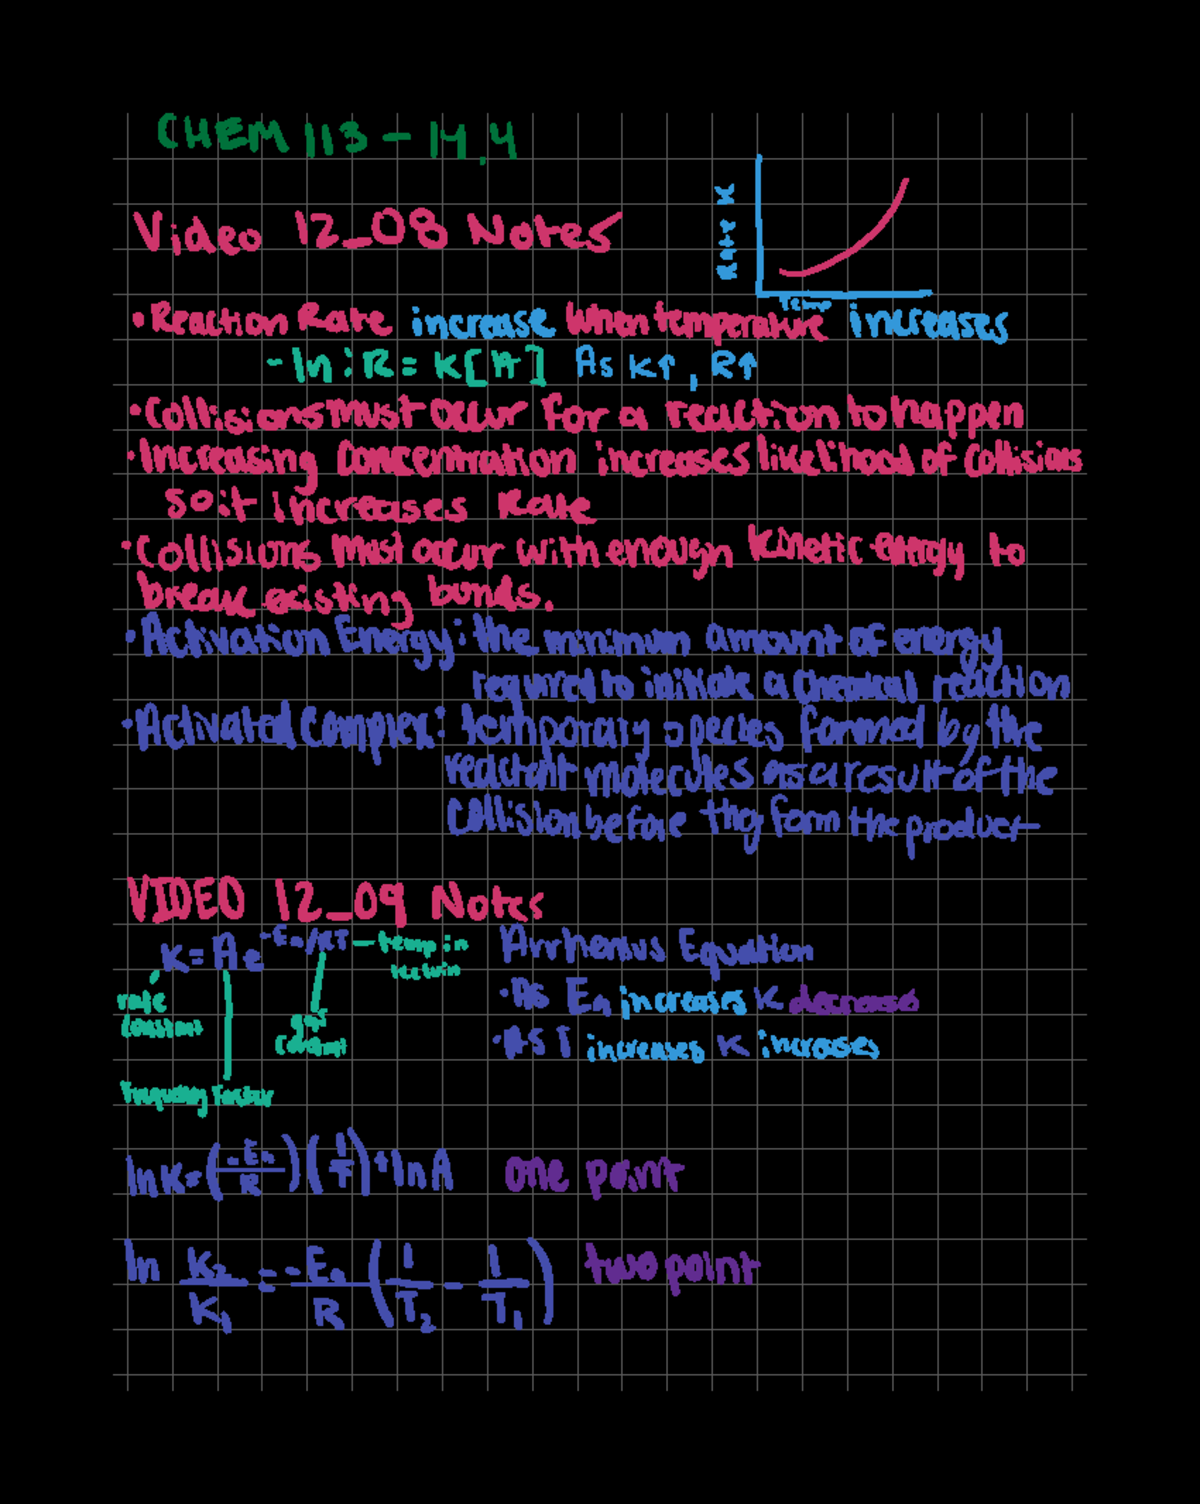 CHEM 113 - 14.4
Video 12_08 Notes
Rate K
Temp
• Reaction Rate increase when temperature increases
- In: R = K[A] As K↑, R↑
• Collisions must occur for a reaction to happen
• Increasing Concentration increases likelihood of collisions
so it increases Rate
• Collisions must occur with enough kinetic energy to
break existing bonds.
• Activation Energy: the minimum amount of energy
required to initiate a chemical reaction
• Activated Complex: temporary species formed by the
reactant molecules as a result of the
collision before they form the product
VIDEO 12_09 Notes
K = Ae^-Ea/RT - temp in
kelvin
rate
constant
gas
constant
Frequency Factor
Arrhenius Equation
• As Ea increases K decreases
• As T increases K increases
ln K = (-Ea/R)(1/T) + ln A one point
ln K2/K1 = -Ea/R (1/T2 - 1/T1) two point